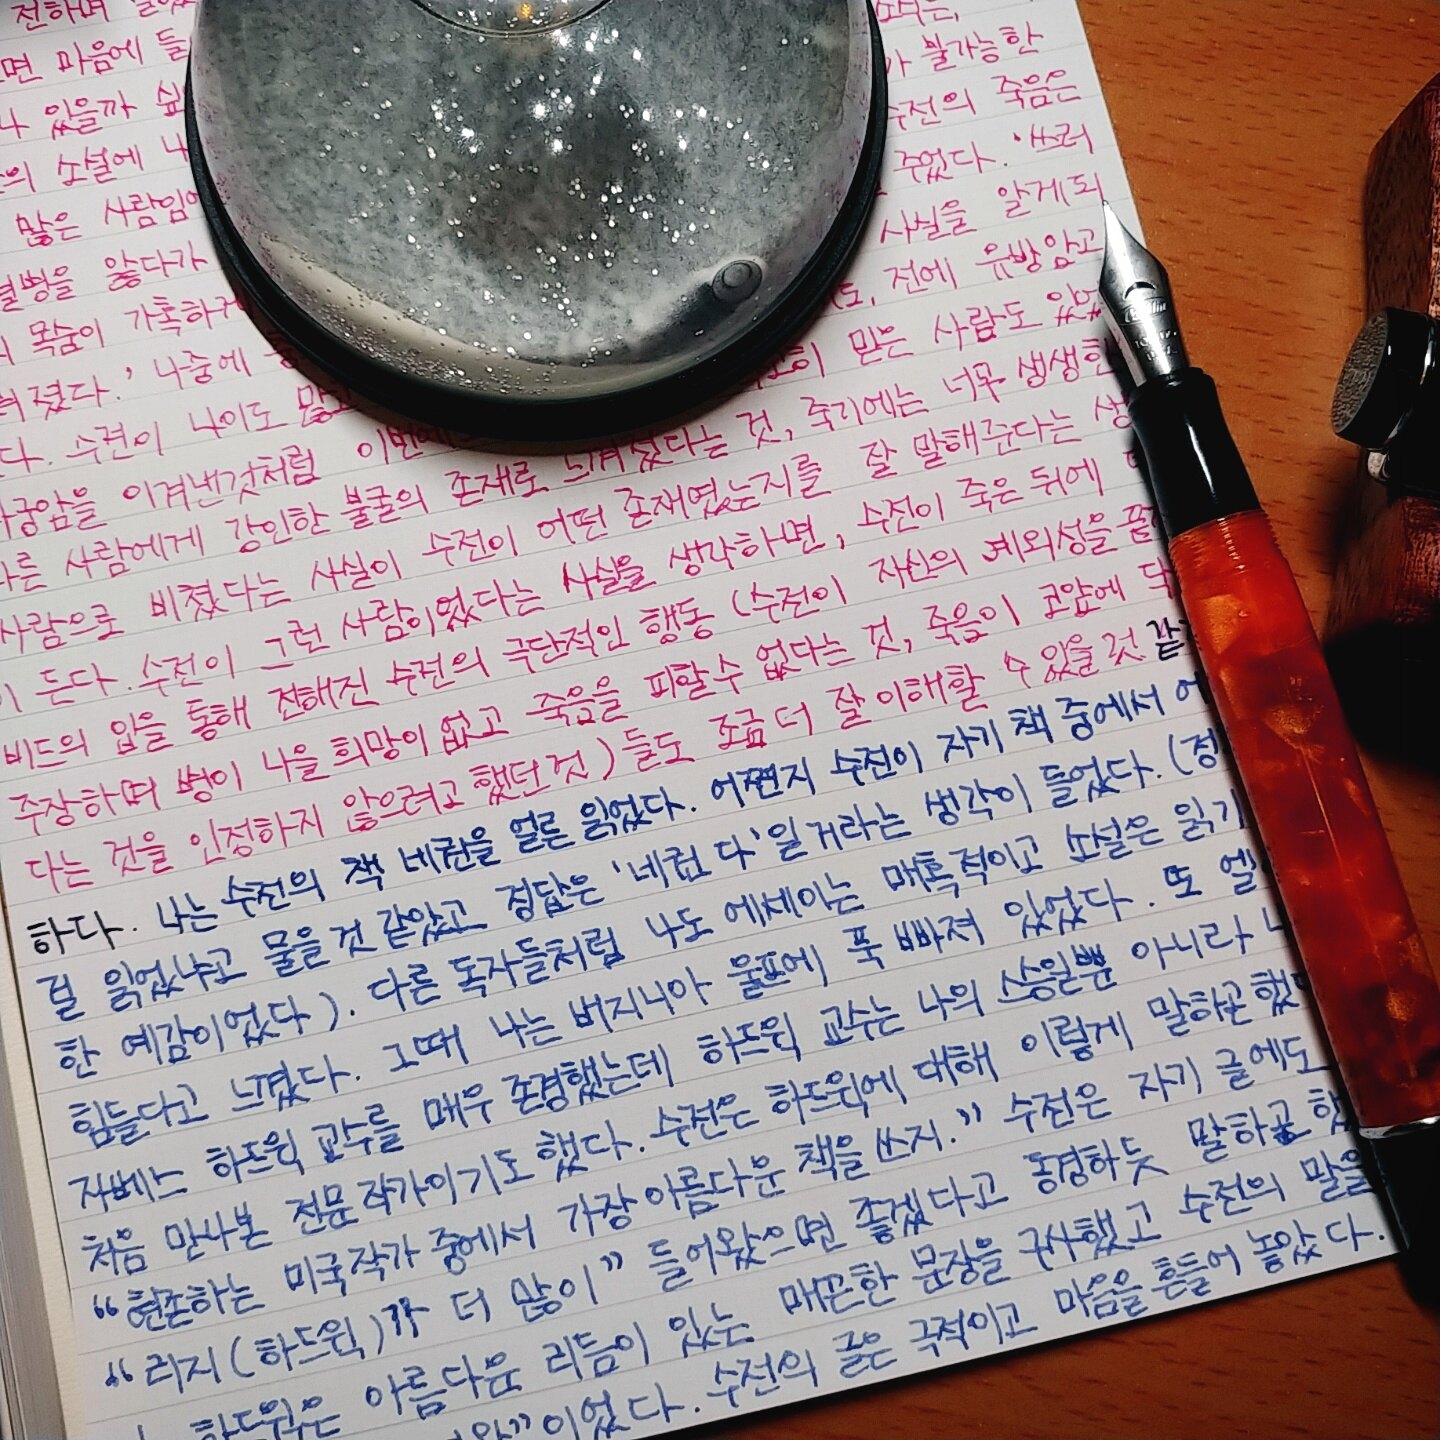 전하며
면 마음에 불가능한
있을까 수전의 죽음은
의 소설에 주었다. '쓰러
많은 사람임에 사실을 알게되
앓다가 전에 유방암고
목숨이 가혹하 믿은 사람도 있었
졌다.' 나중에
다. 수전이 나이도 많고 느껴졌다는 것, 죽기에는 너무 생생한
궁암을 이겨낸것처럼 이번에 존재였는지를 잘 말해준다는 생
다른 사람에게 강인한 불굴의 존재로
사람으로 비쳤다는 사실이 수전이 어떤 생각하면, 수전이 죽은 뒤에
이 든다. 수전이 그런 사람이었다는 사실을 행동 (수전이 자신의 예외성을
비드의 입을 통해 전해진 수전의 극단적인 없다는 것, 죽음이 코앞에
주장하며 병이 나을 희망이 없고 죽음을 피할수 조금 더 잘 이해할 수 있을 것 같
다는 것을 인정하지 않으려고 했던 것) 들도
하다. 나는 수전의 책 네권을 얼른 읽었다. 어쩐지 수전이 자기 책 중에서 어
걸 읽었냐고 물을것 같았고 정답은 '네권 다'일 거라는 생각이 들었다. (정
한 예감이었다). 다른 독자들처럼 나도 에세이는 매혹적이고 소설은 읽기
힘들다고 느꼈다. 그때 나는 버지니아 울프에 푹 빠져 있었다. 또 엘
자베스 하드윅 교수를 매우 존경했는데 하드윅 교수는 나의 스승일뿐 아니라
처음 만나본 전문 작가이기도 했다. 수전은 하드윅에 대해 이렇게 말하곤 했
"현존하는 미국작가 중에서 가장 아름다운 책을 쓰지." 수전은 자기 글에도
"리지(하드윅)가 더 많이" 들어왔으면 좋겠다고 동경하듯 말하곤 했
하드윅은 아름다운 리듬이 있는 매끈한 문장을 구사했고 수전의 말을
"이었다. 수전의 글은 극적이고 마음을 흔들어 놓았다.